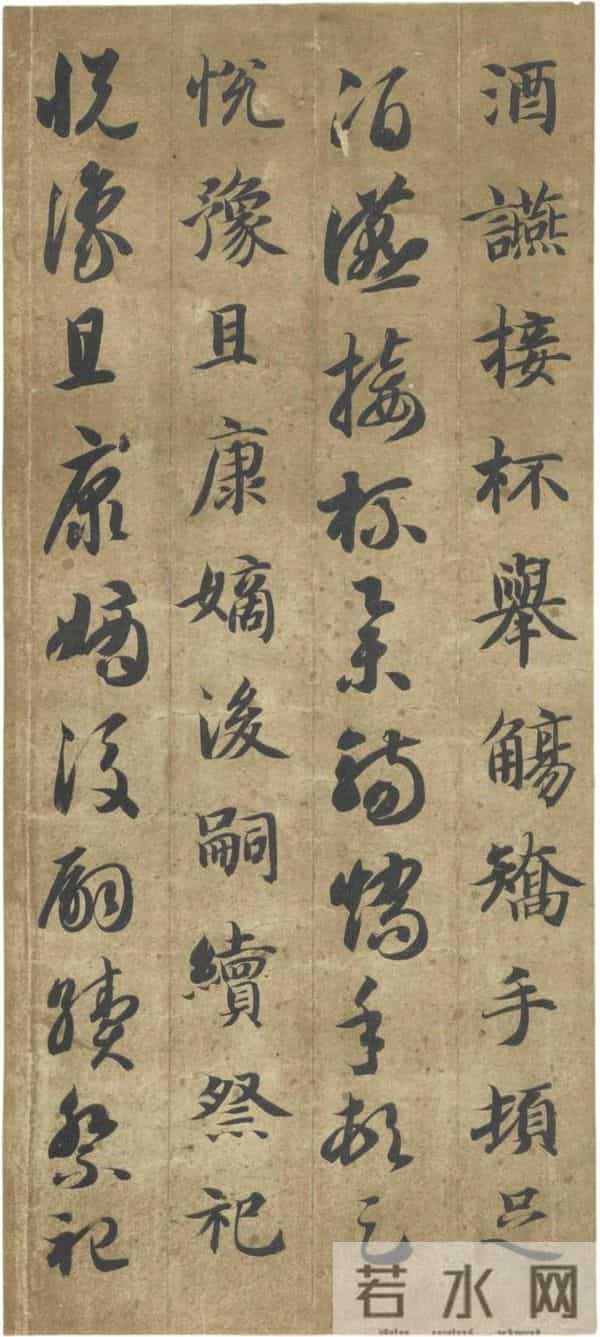 酒讌接杯舉觴矯手頓足
酒讌接杯舉觴矯手頓足
悅豫且康嫡後嗣續祭祀
悅豫且康嫡後嗣續祭祀
若水网